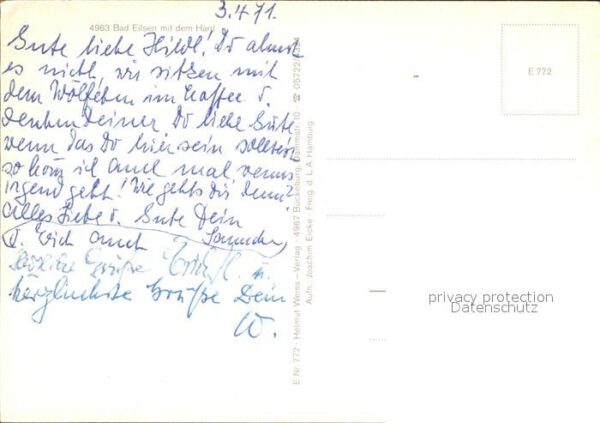 3.4.71.
4963 Bad Eilsen mit dem Harrl
Gute liebe Hildl! Du ahnst
es nicht, wir sitzen mit
dem Wölfchen im Kaffee u.
denken Deiner, Du liebe Gute,
wenn das Du hier sein solltest
so komm ich auch mal, wenns
irgend geht! Wie gehts Dir denn?
Alles Liebe u. Gute Dein
u. Erich auch
Grüße Erich u.
herzlichste Grüße Dein
W.
E 772
E Nr. 772 - Helmut Weiss - Verlag - 4967 Bückeburg
Aufn. Joachim Eicke - Freig. d. L.A. Hamburg
privacy protection
Datenschutz